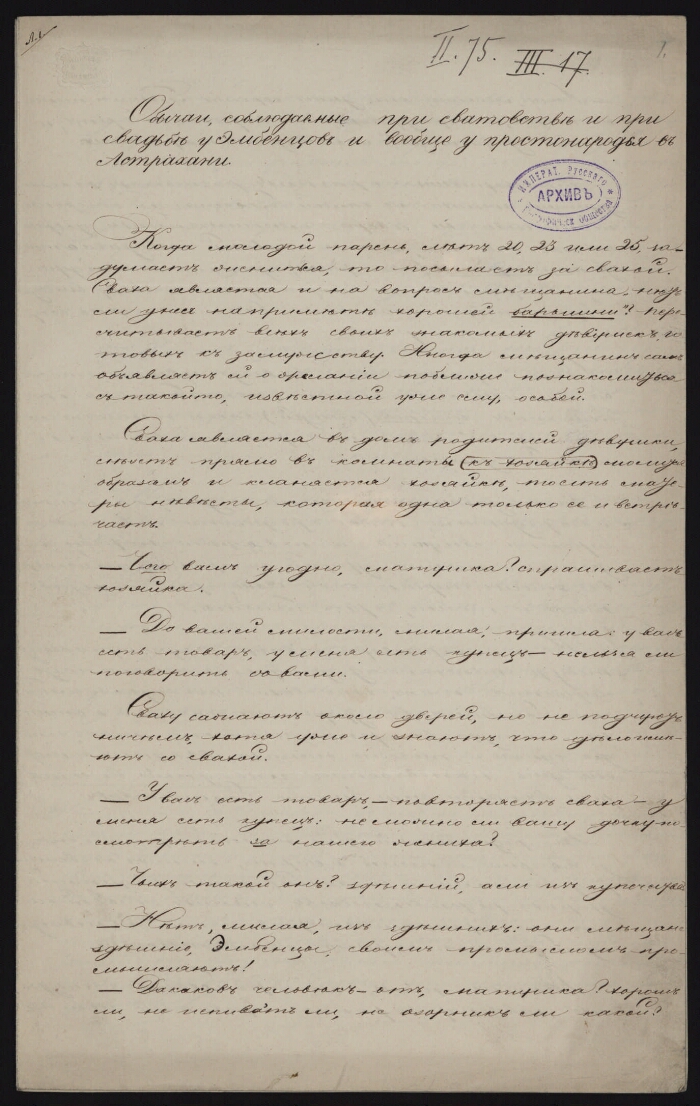 Л. 1
II. 75. III. 17.
1.
Обычаи, соблюдаемые при сватовствѣ и при
свадьбѣ у Эмбенцовъ и вообще у простонародья въ
Астрахани.
ИМПЕРАТ. РУССКАГО
АРХИВЪ
ГЕОГРАФИЧЕСК. ОБЩЕСТВА
Когда молодой парень, лѣтъ 20, 23 или 25, за-
думаетъ жениться, то посылаетъ за свахой.
Сваха является и на вопросъ мѣщанина „нѣтъ
ли у нея на примѣтѣ хорошей барышни"? пере
считываетъ всѣхъ своихъ знакомыхъ дѣвушекъ, го
товыхъ къ замужству. Иногда мѣщанинъ самъ
объявляетъ ей о желаніи поближе познакомиться
съ такойто, извѣстной уже ему, особой.
Сваха является въ домъ родителей дѣвушки,
прямо въ комнаты (къ хозяйкѣ)
образамъ и кланяется хозяйкѣ, то есть мате-
ри невѣсты, которая одна только ее и встрѣ-
чаетъ.
— Чего вамъ угодно, матушка? спрашиваетъ
хозяйка.
— До вашей милости, милая, пришла: у васъ
есть товаръ, у меня есть купецъ — нельзя ли
поговорить съ вами.
Сваху сажаютъ около дверей, но не подчуютъ
ничѣмъ, хотя уже и знаютъ, что дѣло имѣ-
ютъ со свахой.
— У васъ есть товаръ, — повторяетъ сваха — у
меня есть купецъ: не можно ли вашу дочку по-
смотрѣть за нашего жениха?
— Чьихъ такой онъ? здѣшній, али изъ
— Нѣтъ, милая, изъ здѣшнихъ: они мѣщане
здѣшніе, Эмбенцы, своимъ промысломъ про-
мышляютъ!
— Да каковъ человѣкъ-отъ, матушка? хорошъ
ли, не испиватъ ли, не озорникъ ли какой?